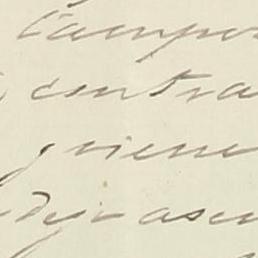 campo
contra
y viene
deja asen